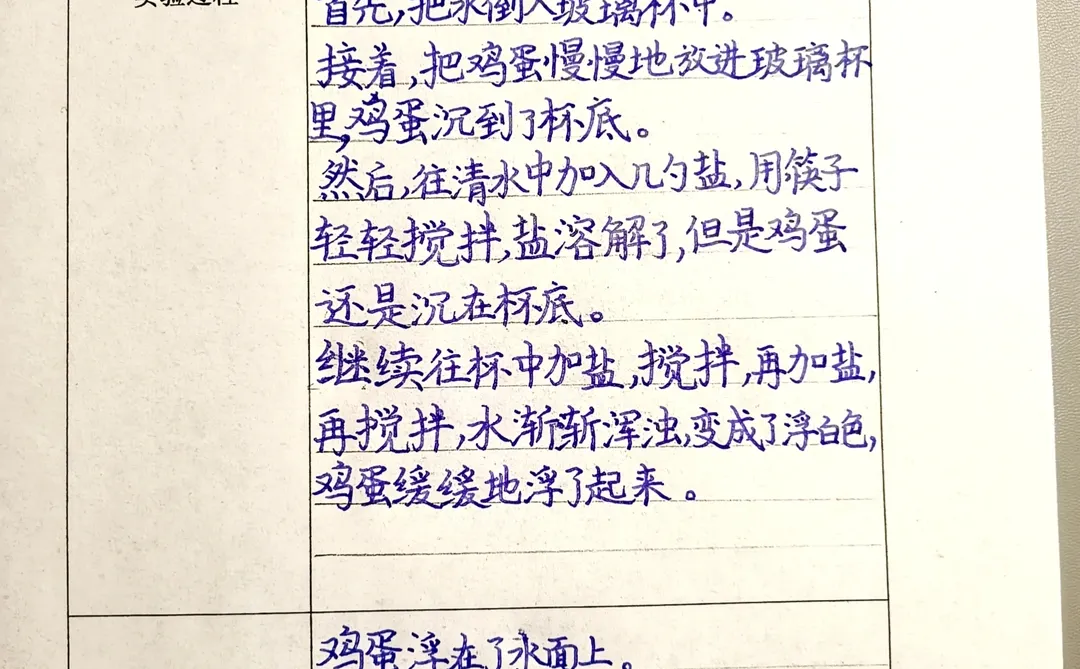 实验过程
首先,把水倒入玻璃杯中。
接着,把鸡蛋慢慢地放进玻璃杯
里,鸡蛋沉到了杯底。
然后,往清水中加入几勺盐,用筷子
轻轻搅拌,盐溶解了,但是鸡蛋
还是沉在杯底。
继续往杯中加盐,搅拌,再加盐,
再搅拌,水渐渐浑浊,变成了浮白色,
鸡蛋缓缓地浮了起来。
鸡蛋浮在了水面上。